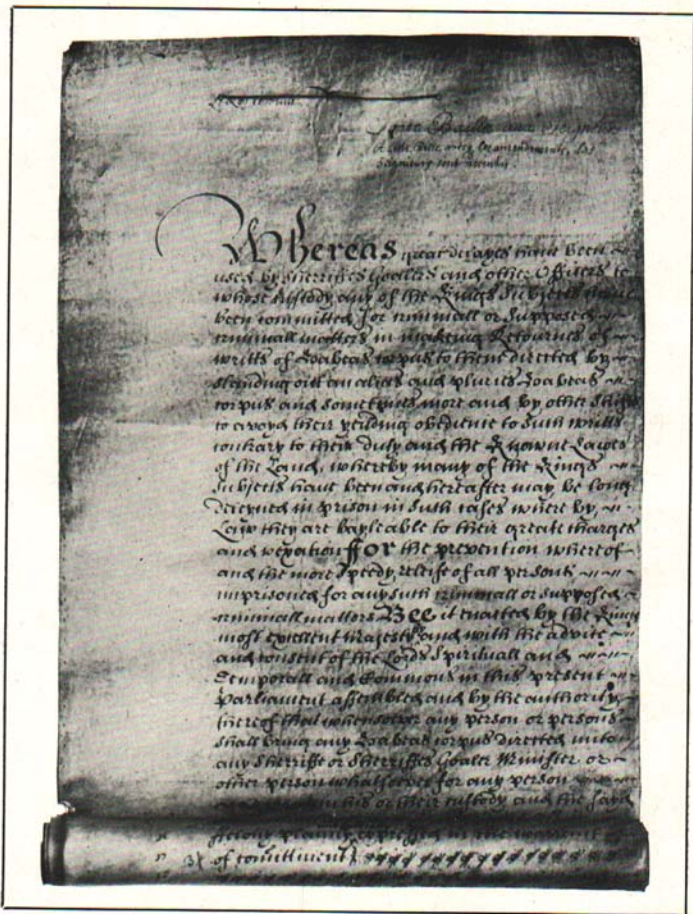 Whereas great delayes have been
used by Sherriffes Goalers and other Officers to
whose Custody any of the Kings Subjects have
been committed for criminall or Supposed
criminall matters in makeing Retournes of
writts of Habeas Corpus to them directed by
standing out an alias and pluries Habeas
Corpus and sometymes more and by other Shifts
to avoyd their yeilding obedience to Such writts
contrary to their duty and the Knowne Lawes
of the Land, whereby many of the Kings
Subjects have been and hereafter may be long
deteyned in prison in Such cases where by
Law they are bayleable to their great charges
and vexation ffor the prevention whereof
and the more Speedy releife of all persons
imprisoned for any such criminall or supposed
criminall matters Bee it enacted by the Kings
most excellent Majesty and with the advice
and consent of the Lords Spirituall and
Temporall and Commons in this present
Parliament assembled and by the authority
thereof that whensoever any person or persons
shall bring any Habeas Corpus directed unto
any Sherriffe or Sherriffes Goaler Minister or
other person whatsoever for any person
in his or their custody and the said
plainly expressed in the warrant
of comittment